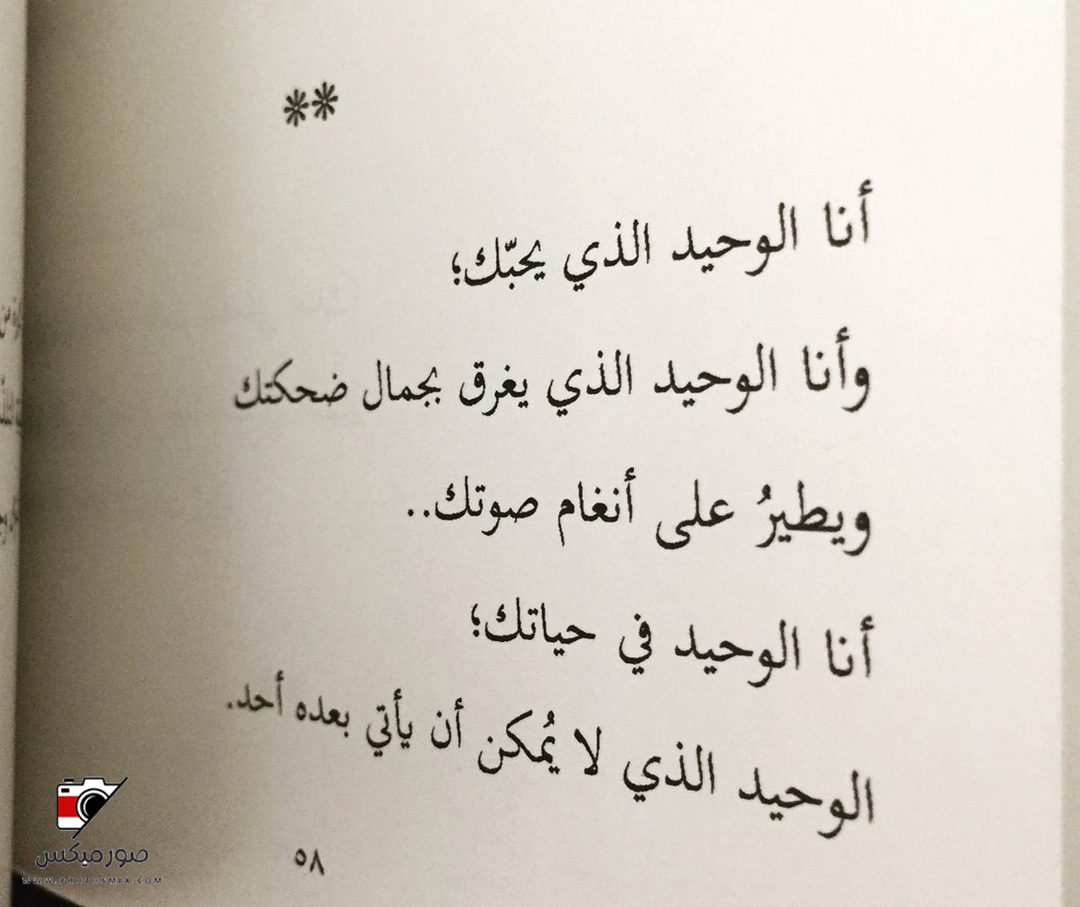 **
أنا الوحيد الذي يحبّك؛
وأنا الوحيد الذي يغرق بجمال ضحكتك
ويطيرُ على أنغام صوتك..
أنا الوحيد في حياتك؛
الوحيد الذي لا يُمكن أن يأتي بعده أحد.
٥٨
صور ميكس
WWW.PHOTOSMIX.COM